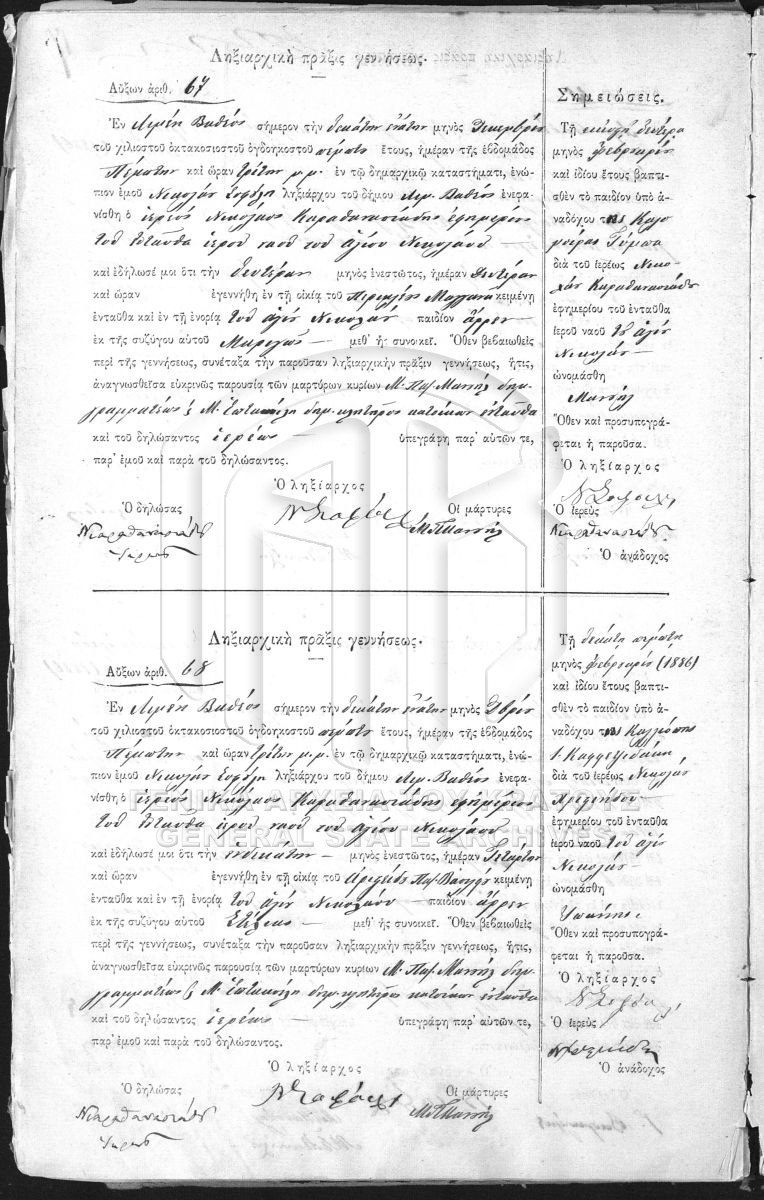 Ληξιαρχικὴ πρᾶξις γεννήσεως.
Αὔξων ἀριθ. 67
Ἐν Λιμένι Βαθέος σήμερον τὴν δεκάτην ἐνάτην μηνὸς Δεκεμβρίου
τοῦ χιλιοστοῦ ὀκτακοσιοστοῦ ὀγδοηκοστοῦ πέμπτου ἔτους, ἡμέραν τῆς ἑβδομάδος
Πέμπτην καὶ ὥραν τρίτην μ.μ. ἐν τῷ δημαρχικῷ καταστήματι, ἐνώ-
πιον ἐμοῦ Νικολάου Σοφούλη ληξιάρχου τοῦ δήμου Λιμ. Βαθέος ἐνεφα-
νίσθη ὁ ἱερεὺς Νικόλαος Καραθανασιάδης ἐφημέριος
τοῦ ἐνταῦθα ἱεροῦ ναοῦ τοῦ ἁγίου Νικολάου
καὶ ἐδήλωσέ μοι ὅτι τὴν δευτέραν μηνὸς ἐνεστῶτος, ἡμέραν Δευτέραν
καὶ ὥραν ἐγεννήθη ἐν τῇ οἰκίᾳ τοῦ Περικλέους κειμένῃ
ἐνταῦθα καὶ ἐν τῇ ἐνορίᾳ τοῦ ἁγίου Νικολάου παιδίον ἄρρεν
ἐκ τῆς συζύγου αὐτοῦ Μαριγῶς μεθ' ἧς συνοικεῖ. Ὅθεν βεβαιωθεὶς
περὶ τῆς γεννήσεως, συνέταξα τὴν παροῦσαν ληξιαρχικὴν πρᾶξιν γεννήσεως, ἥτις,
ἀναγνωσθεῖσα εὐκρινῶς παρουσίᾳ τῶν μαρτύρων κυρίων Μ. Παπ. Μανώλη δημ.
γραμματέως ς Μ. Ἑπτακοίλη δημ. κλητῆρος κατοίκων ἐνταῦθα
καὶ τοῦ δηλώσαντος ἱερέως ὑπεγράφη παρ' αὐτῶν τε,
παρ' ἐμοῦ καὶ παρὰ τοῦ δηλώσαντος.
Ὁ ληξίαρχος
Ὁ δηλώσας Οἱ μάρτυρες
Ν Σοφούλης
Νικαραθανασιάδης
ἱερεὺς
Σημειώσεις.
Τῇ εἰκοστῇ δευτέρᾳ
μηνὸς Φεβρουαρίου
καὶ ἰδίου ἔτους βαπτι-
σθὲν τὸ παιδίον ὑπὸ ἀ-
ναδόχου τῆς Καλο
μοίρας
διὰ τοῦ ἱερέως Νικο
λάου Καραθανασιάδου
ἐφημερίου τοῦ ἐνταῦθα
ἱεροῦ ναοῦ τοῦ ἁγίου
Νικολάου
ὠνομάσθη
Μανώλης
Ὅθεν καὶ προσυπογρά-
φεται ἡ παροῦσα.
Ὁ ληξίαρχος
Ν Σοφούλης
Ὁ ἱερεὺς
Νικαραθανασιάδης
Ὁ ἀνάδοχος
Ληξιαρχικὴ πρᾶξις γεννήσεως.
Αὔξων ἀριθ. 68
Ἐν Λιμένι Βαθέος σήμερον τὴν δεκάτην ἐνάτην μηνὸς Δ/βρίου
τοῦ χιλιοστοῦ ὀκτακοσιοστοῦ ὀγδοηκοστοῦ πέμπτου ἔτους, ἡμέραν τῆς ἑβδομάδος
Πέμπτην καὶ ὥραν τρίτην μ.μ. ἐν τῷ δημαρχικῷ καταστήματι, ἐνώ-
πιον ἐμοῦ Νικολάου Σοφούλη ληξιάρχου τοῦ δήμου Λιμ. Βαθέος ἐνεφα-
νίσθη ὁ ἱερεὺς Νικόλαος Καραθανασιάδης ἐφημέριος
τοῦ ἐνταῦθα ἱεροῦ ναοῦ τοῦ ἁγίου Νικολάου
καὶ ἐδήλωσέ μοι ὅτι τὴν ἑνδεκάτην μηνὸς ἐνεστῶτος, ἡμέραν Τετάρτην
καὶ ὥραν ἐγεννήθη ἐν τῇ οἰκίᾳ τοῦ κειμένῃ
ἐνταῦθα καὶ ἐν τῇ ἐνορίᾳ τοῦ ἁγίου Νικολάου παιδίον ἄρρεν
ἐκ τῆς συζύγου αὐτοῦ μεθ' ἧς συνοικεῖ. Ὅθεν βεβαιωθεὶς
περὶ τῆς γεννήσεως, συνέταξα τὴν παροῦσαν ληξιαρχικὴν πρᾶξιν γεννήσεως, ἥτις,
ἀναγνωσθεῖσα εὐκρινῶς παρουσίᾳ τῶν μαρτύρων κυρίων Μ. Παπ. Μανώλη δημ.
γραμματέως ς Μ. Ἑπτακοίλη δημ. κλητῆρος κατοίκων ἐνταῦθα
καὶ τοῦ δηλώσαντος ἱερέως ὑπεγράφη παρ' αὐτῶν τε,
παρ' ἐμοῦ καὶ παρὰ τοῦ δηλώσαντος.
Ὁ ληξίαρχος
Ὁ δηλώσας Οἱ μάρτυρες
Ν Σοφούλης
Νικαραθανασιάδης
ἱερεὺς
Τῇ δεκάτῃ πέμπτῃ
μηνὸς Φεβρουαρίου (1886)
καὶ ἰδίου ἔτους βαπτι-
σθὲν τὸ παιδίον ὑπὸ ἀ-
ναδόχου τῆς Καλλιόπης
διὰ τοῦ ἱερέως Νικολάου
ἐφημερίου τοῦ ἐνταῦθα
ἱεροῦ ναοῦ τοῦ ἁγίου
Νικολάου
ὠνομάσθη
Ἰωάννης.
Ὅθεν καὶ προσυπογρά-
φεται ἡ παροῦσα.
Ὁ ληξίαρχος
Ν Σοφούλης
Ὁ ἱερεὺς
Ὁ ἀνάδοχος
ΓΕΝΙΚΑ ΑΡΧΕΙΑ ΤΟΥ ΚΡΑΤΟΥΣ
GENERAL STATE ARCHIVES